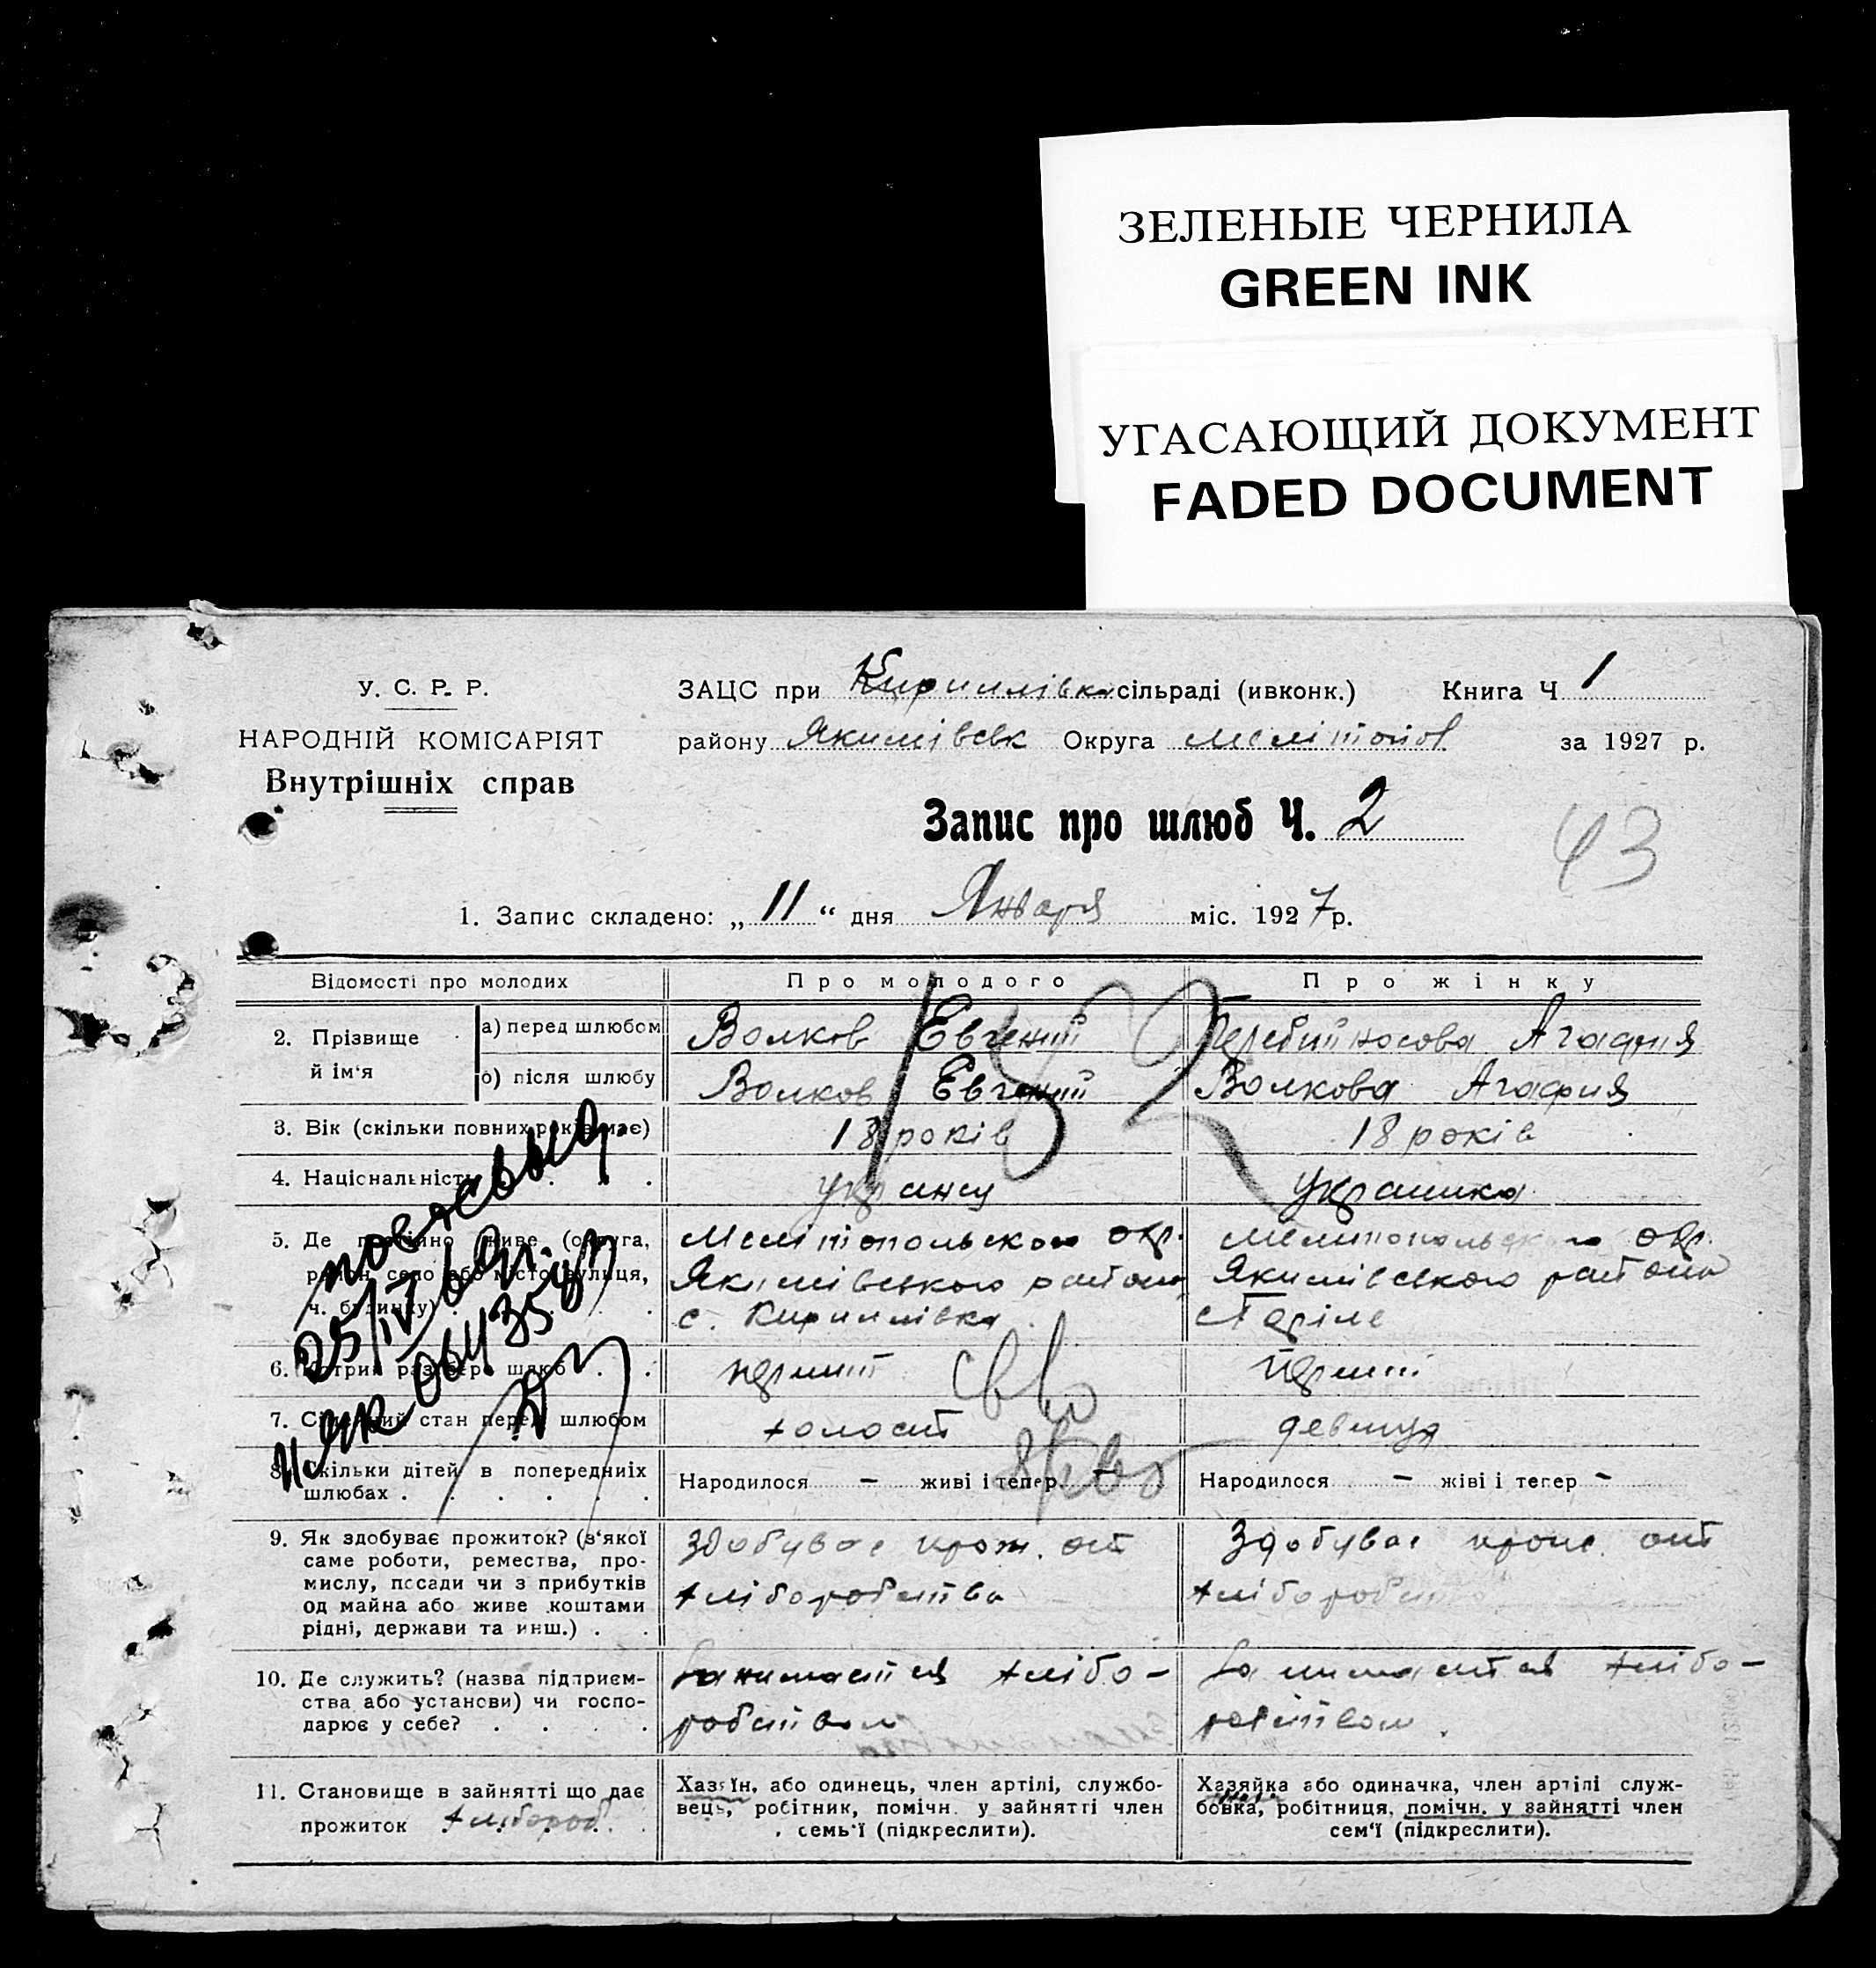 ЗЕЛЕНЫЕ ЧЕРНИЛА
GREEN INK
УГАСАЮЩИЙ ДОКУМЕНТ
FADED DOCUMENT
У. С. Р. Р.
НАРОДНІЙ КОМІСАРІЯТ
Внутрішніх справ
ЗАЦС при Кирилівка сільраді (ивконк.) Книга Ч 1
району Якимівськ Округа Мелітопол за 1927 р.
Запис про шлюб Ч. 2
43
1. Запис складено: „11“ дня Января міс. 1927 р.
Відомості про молодих Про молодого Про жінку
2. Прізвище й ім‘я
а) перед шлюбом Волков Евгений Перебийносова Агафия
б) після шлюбу Волков Евгений Волкова Агафия
3. Вік (скільки повних років має) 18 років 18 років
4. Національність
5. Де постійно живе (округа, Мелітопольского окр. Мелитопольского окр.
район, село або місто, вулиця, Якимівського района Якимівського района
ч. будинку) с. Кирилівка
6. Котрий раз бере шлюб перший перший
7. Сімейний стан перед шлюбом холост девица
8. Скільки дітей в попередниіх Народилося — живі і тепер — Народилося — жіві і тепер -
шлюбах
9. Як здобуває прожиток? (з‘якої Здобуває прож. от Здобуває прож. от
саме роботи, ремества, про- хліборобства хліборобства
мислу, посади чи з прибутків
од майна або живе коштами
рідні, держави та инш.)
10. Де служить? (назва підприєм- Занимается хлібо- Занимается хлібо-
ства або установи) чи госпо- робством робством
дарює у себе?
11. Становище в зайнятті що дає
прожиток хлібороб.
Хазяїн, або одинець, член артілі, службо-
вець, робітник, помічн. у зайнятті член
семь‘ї (підкреслити).
Хазяйка або одиначка, член артілі служ-
бовка, робітниця, помічн. у зайнятті член
сем‘ї (підкреслити).